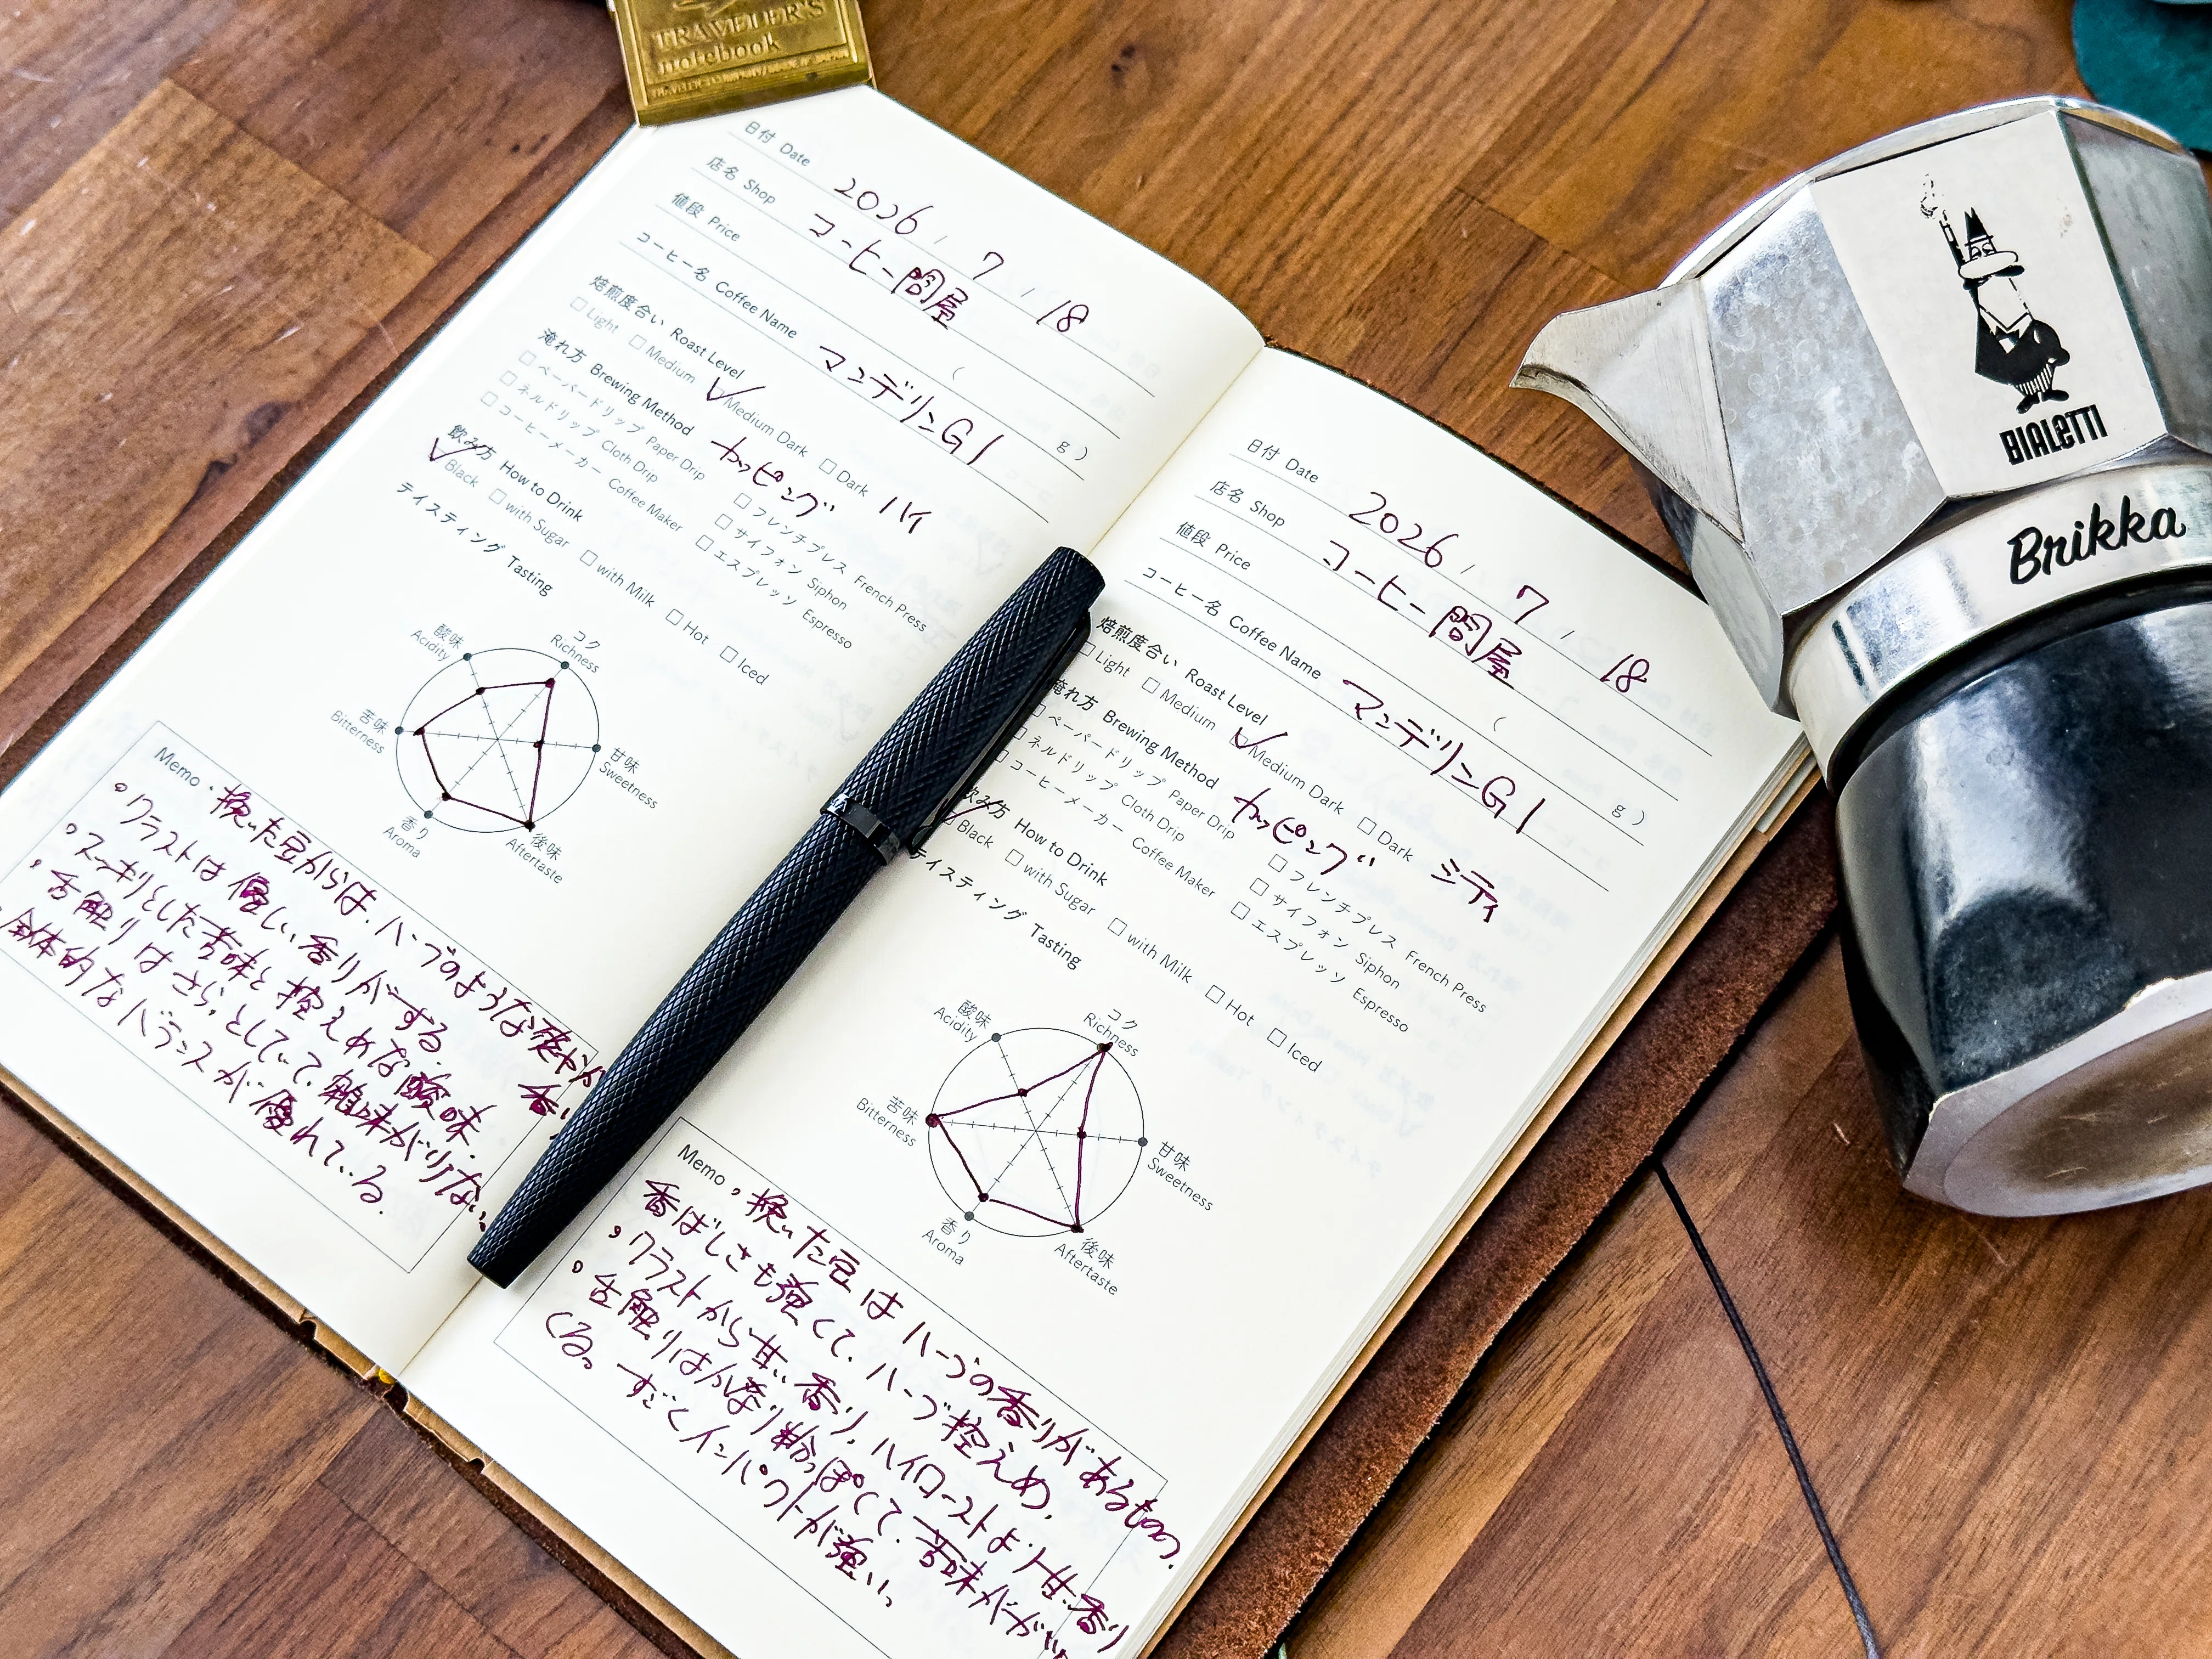 TRAVELER'S
notebook
日付 Date 2026 / 7 / 18
店名 Shop コーヒー問屋
値段 Price ( g )
コーヒー名 Coffee Name マンデリンG1
焙煎度合い Roast Level
Light Medium Medium Dark Dark ハイ
淹れ方 Brewing Method カッピング
ペーパードリップ Paper Drip フレンチプレス French Press
ネルドリップ Cloth Drip サイフォン Siphon
コーヒーメーカー Coffee Maker エスプレッソ Espresso
飲み方 How to Drink
Black with Sugar with Milk Hot Iced
テイスティング Tasting
酸味 Acidity
コク Richness
苦味 Bitterness
甘味 Sweetness
香り Aroma
後味 Aftertaste
Memo ・挽いた豆からは、ハーブのような爽やか
香
。クラストは優しい香りがする。
。スッキリとした苦味と控えめな酸味、
・舌触りはさらっとしていて、雑味が少ない。
全体的なバランスが優れている。
日付 Date 2026 / 7 / 18
店名 Shop コーヒー問屋
値段 Price ( g )
コーヒー名 Coffee Name マンデリンG1
焙煎度合い Roast Level
Light Medium Medium Dark Dark シティ
淹れ方 Brewing Method カッピング
ペーパードリップ Paper Drip フレンチプレス French Press
ネルドリップ Cloth Drip サイフォン Siphon
コーヒーメーカー Coffee Maker エスプレッソ Espresso
飲み方 How to Drink
Black with Sugar with Milk Hot Iced
テイスティング Tasting
酸味 Acidity
コク Richness
苦味 Bitterness
甘味 Sweetness
香り Aroma
後味 Aftertaste
Memo 。挽いた豆はハーブの香りがあるものの、
香ばしさも強くて、ハーブ控えめ。
。クラストから甘い香り、ハイローストより甘い香り
。舌触りはかなり粉っぽくて、苦味がガツンと
くる。すごくインパクトが強い。
BIALETTI
Brikka